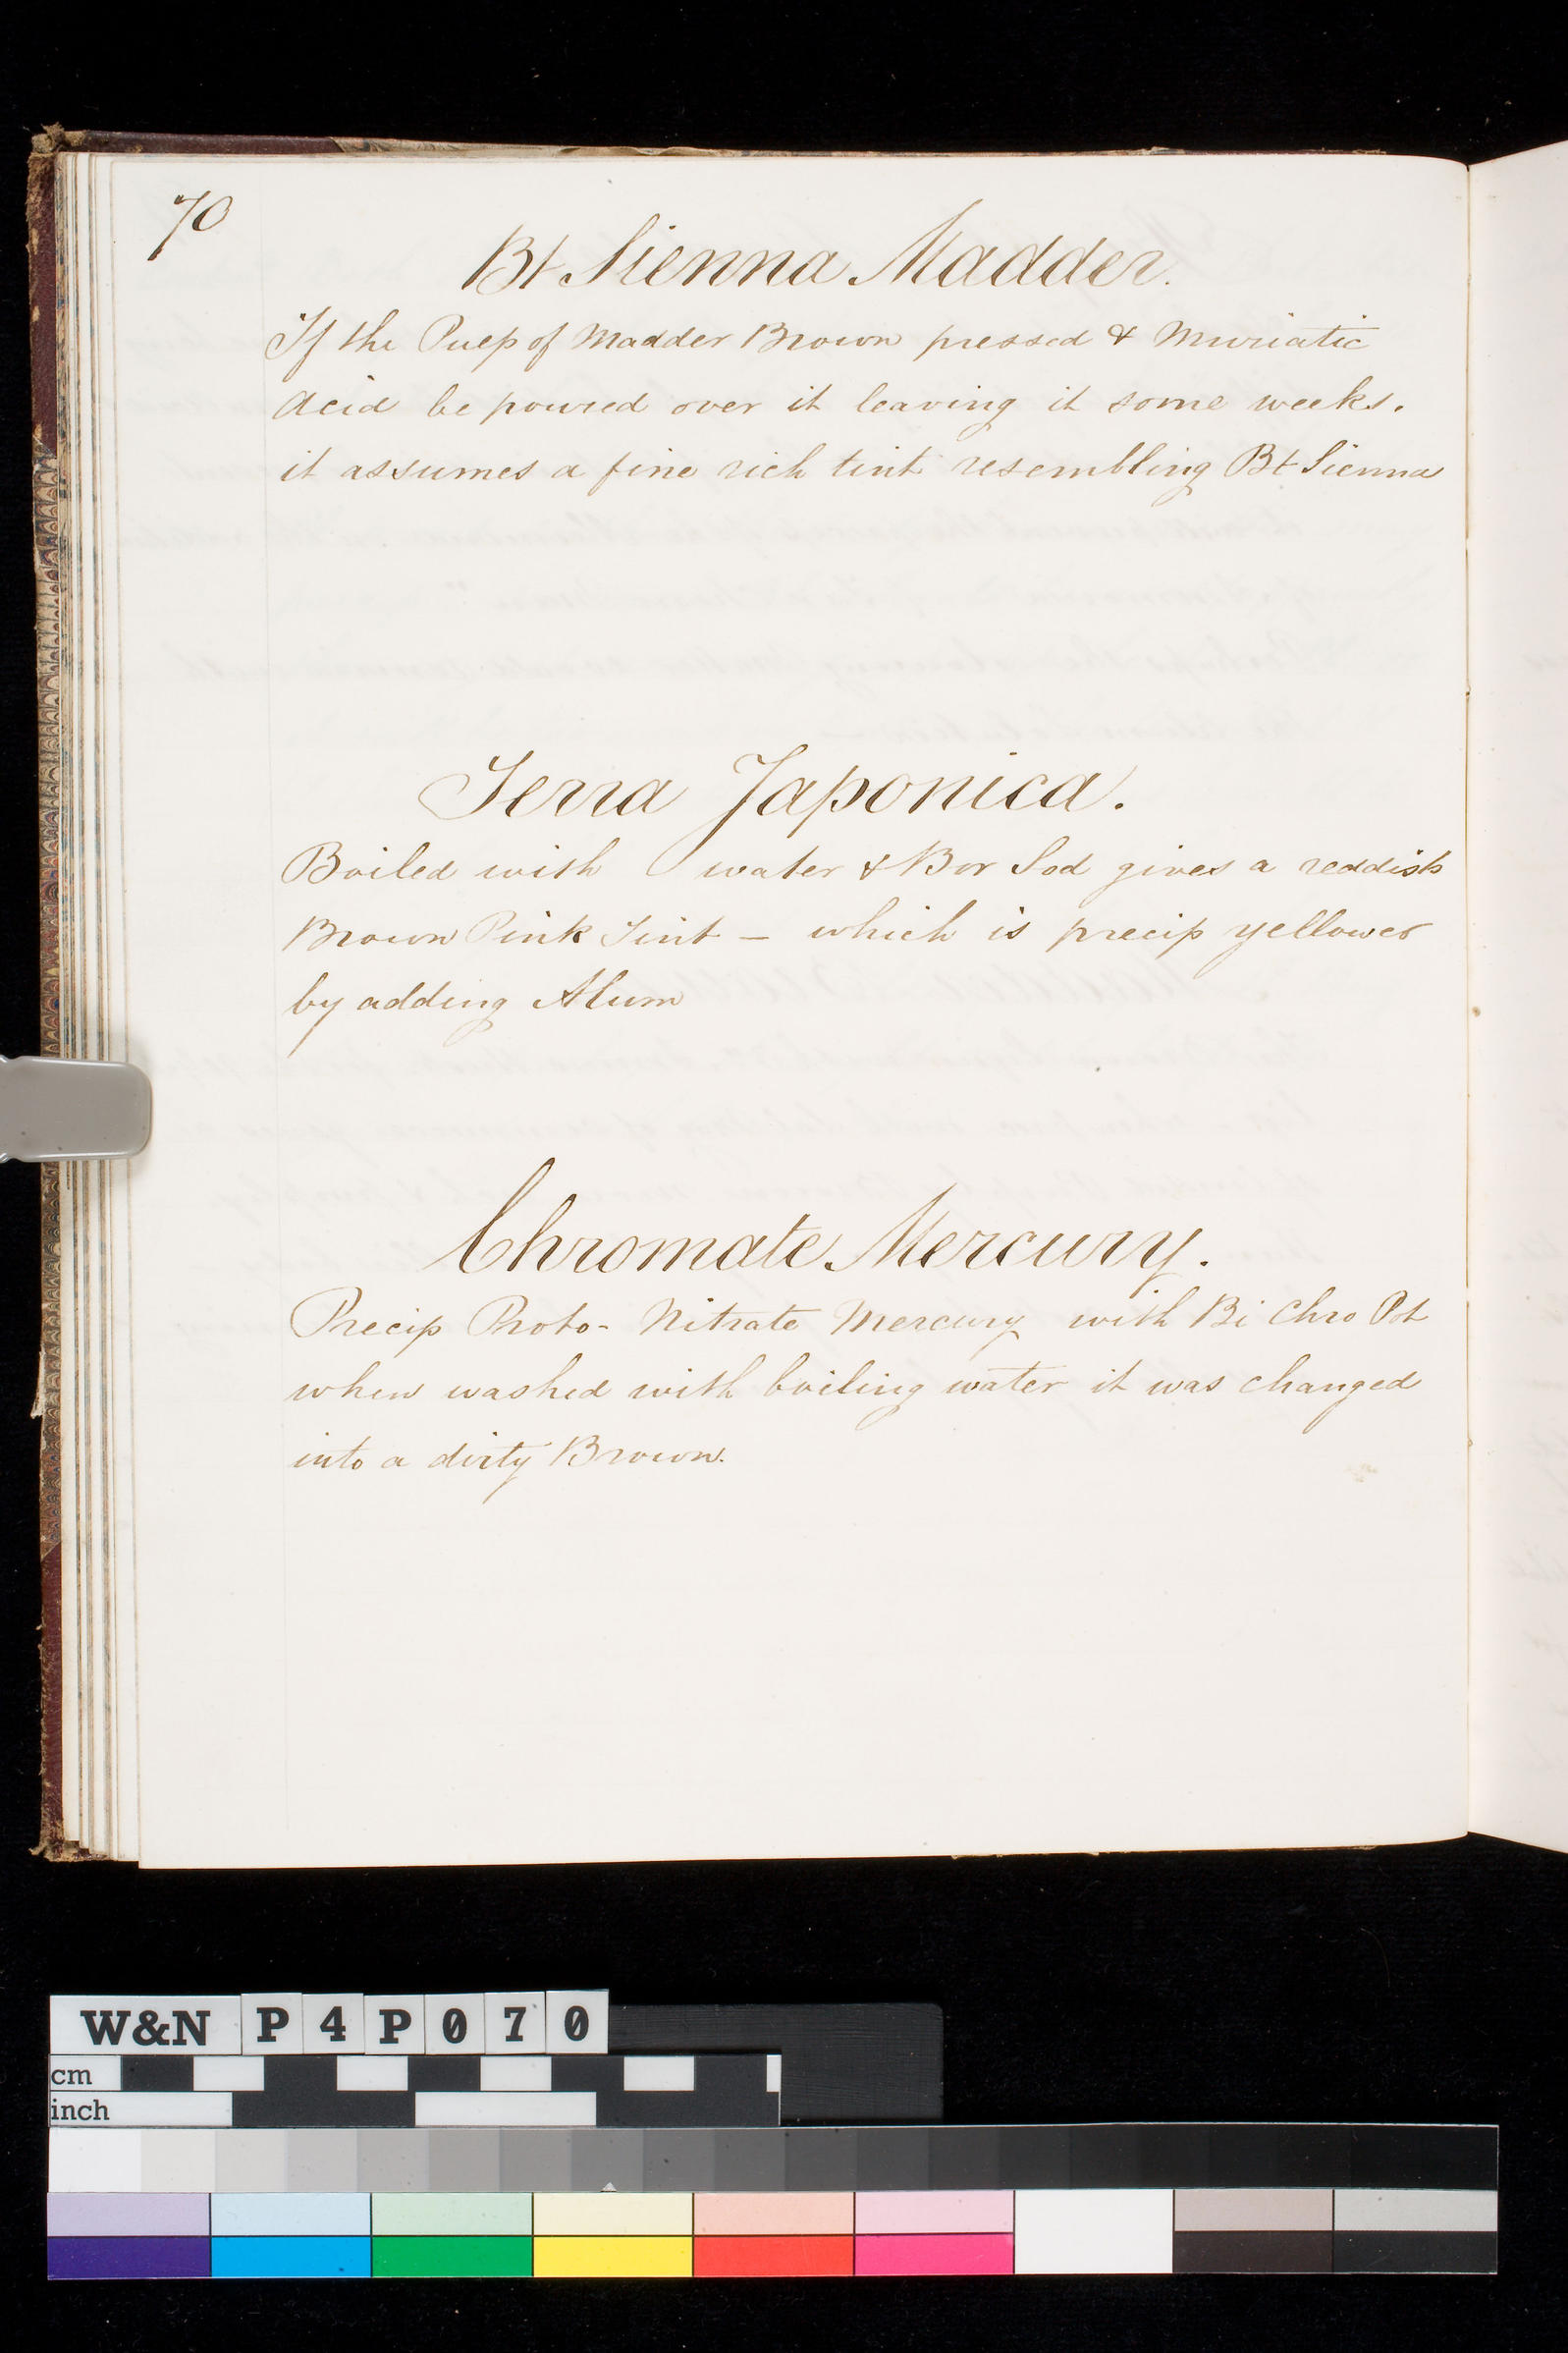 70
Bt Sienna Madder.
If the Pulp of Madder Brown pressed & Muriatic
Acid be poured over it leaving it some weeks.
it assumes a fine rich tint resembling Bt Sienna
Terra Japonica.
Boiled with water & Bor Sod gives a reddish
Brown Pink Tint – which is precip yellower
by adding Alum
Chromate Mercury.
Precip Proto- Nitrate Mercury with Bi Chro Pot
when washed with boiling water it was changed
into a dirty Brown.
W&N P4P070
cm
inch